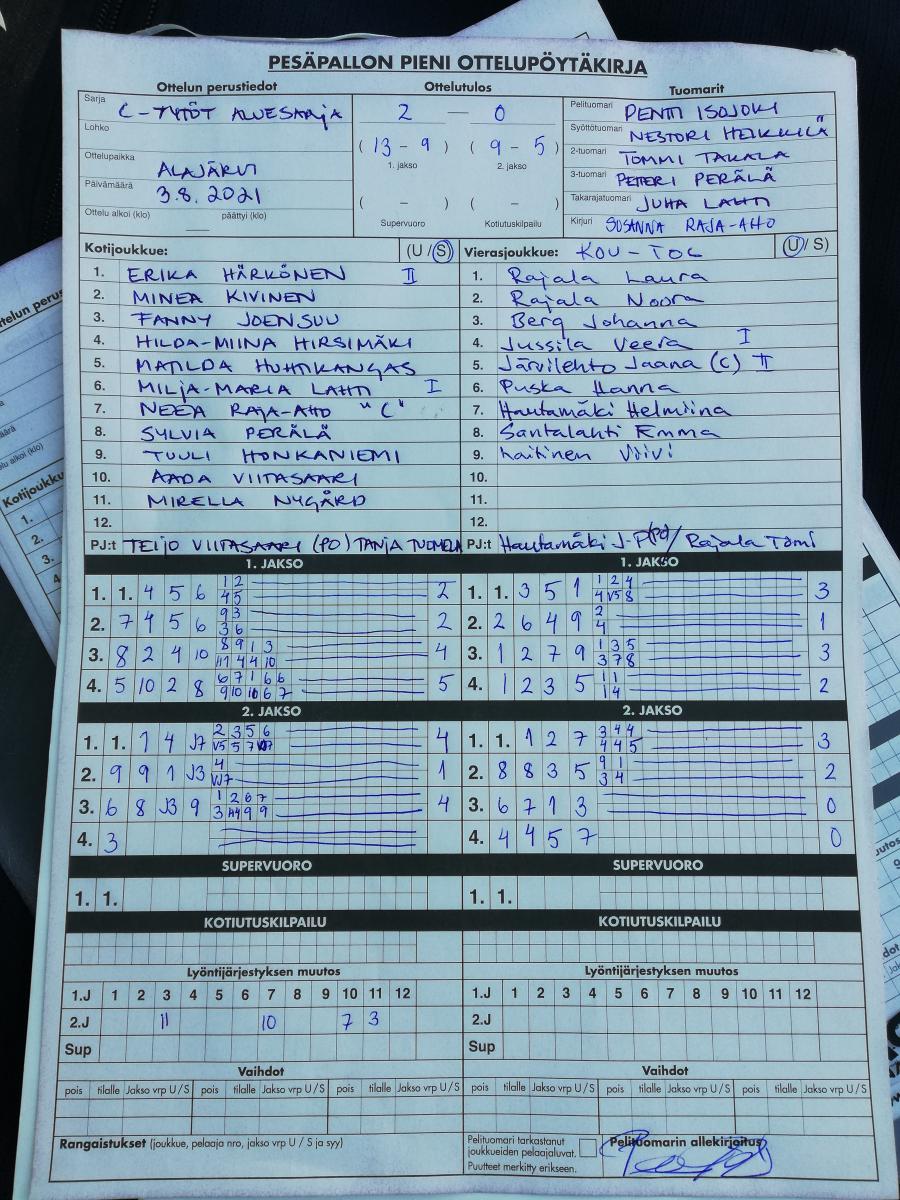 PESÄPALLON PIENI OTTELUPÖYTÄKIRJA
Ottelun perustiedot
Sarja C-TYTÖT ALUESARJA
Lohko
Ottelupaikka ALAJÄRVI
Päivämäärä 3.8.2021
Ottelu alkoi (klo) päättyi (klo)
Ottelutulos
2 — 0
(13 - 9) (9 - 5)
1. jakso 2. jakso
( - ) ( - )
Supervuoro Kotiutuskilpailu
Tuomarit
Pelituomari PENTTI ISOJOKI
Syöttötuomari NESTORI HEIKKILÄ
2-tuomari TOMMI TAKALA
3-tuomari PETTERI PERÄLÄ
Takarajatuomari JUHA LAHTI
Kirjuri SUSANNA RAJA-AHO
Kotijoukkue: (U/S)
1. ERIKA HÄRKÖNEN II
2. MINEA KIVINEN
3. FANNY JOENSUU
4. HILDA-MIINA HIRSIMÄKI
5. MATILDA HUHTIKANGAS
6. MILJA-MARIA LAHTI I
7. NEEA RAJA-AHO "C"
8. SYLVIA PERÄLÄ
9. TUULI HONKANIEMI
10. AADA VIITASAARI
11. MIRELLA NYGÅRD
12.
PJ:t TEIJO VIITASAARI (PO) TANJA TUOMELA
Vierasjoukkue: KOU-TOC (U/S)
1. Rajala Laura
2. Rajala Noora
3. Berg Johanna
4. Jussila Veera I
5. Järvilehto Jaana (C) II
6. Puska Hanna
7. Hautamäki Helmiina
8. Santalahti Emma
9. Viivi
10.
11.
12.
PJ:t Hautamäki J-P (PO) / Rajala Tomi
1. JAKSO
1. 1. 4 5 6 1 2 2
4 5
2. 7 4 5 6 9 3 2
3 6
3. 8 2 4 10 8 9 1 3 4
11 4 4 10
4. 5 10 2 8 6 7 1 6 6 5
9 10 10 6 7
1. JAKSO
1. 1. 3 5 1 1 2 4 3
4 V5 8
2. 2 6 4 9 2 1
4
3. 1 2 7 9 1 3 5 3
3 7 8
4. 1 2 3 5 1 1 2
1 4
2. JAKSO
1. 1. 1 4 J7 2 3 5 6 4
V5 5 7
2. 9 9 1 J3 4 1
VJ7
3. 6 8 J3 9 1 2 6 7 4
3 4 9 9
4. 3
2. JAKSO
1. 1. 1 2 7 3 4 4 3
4 4 5
2. 8 8 3 5 9 1 2
3 4
3. 6 7 1 3 0
4. 4 4 5 7 0
SUPERVUORO
1. 1.
SUPERVUORO
1. 1.
KOTIUTUSKILPAILU
KOTIUTUSKILPAILU
Lyöntijärjestyksen muutos
1.J 1 2 3 4 5 6 7 8 9 10 11 12
2.J 11 10 7 3
Sup
Lyöntijärjestyksen muutos
1.J 1 2 3 4 5 6 7 8 9 10 11 12
2.J
Sup
Vaihdot
pois tilalle Jakso vrp U/S pois tilalle Jakso vrp U/S pois tilalle Jakso vrp U/S
Vaihdot
pois tilalle Jakso vrp U/S pois tilalle Jakso vrp U/S pois tilalle Jakso vrp U/S
Rangaistukset (joukkue, pelaaja nro, jakso vrp U / S ja syy)
Pelituomari tarkastanut
joukkueiden pelaajaluvat.
Puutteet merkitty erikseen.
Pelituomarin allekirjoitus